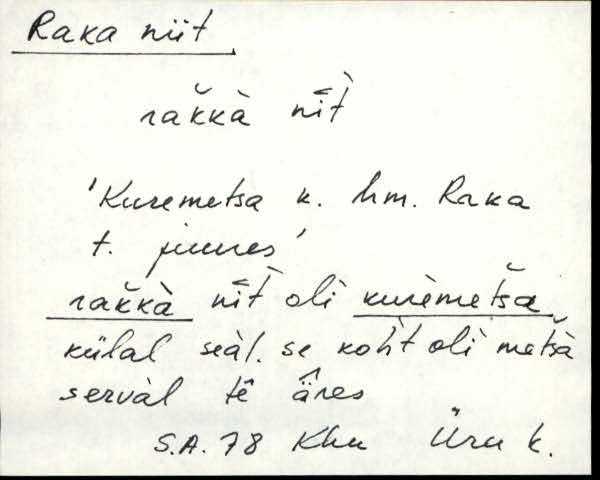 Raka niit
rak̆kà nīt̀
'Kuremetsa k. hm. Raka
t. juures'
rak̆kà nīt̀ olì kurèmets̆a
külal seàl. se koh̀t olì mets̆à
servàl tē ä̂res
S.A. 78 Khn Üru k.